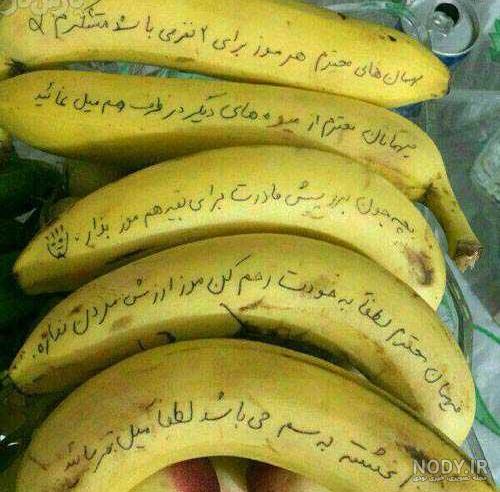 مهمان های محترم هر موز برای ۲ نفر می باشد متشکرم
میهمانان محترم از میوه های دیگر در ظرف هم میل نمائید
بچه جون برو پیش مادرت برای بقیه هم موز بذار
میهمان محترم لطفاً به خودت رحم کن موز ارزش مردن نداره.
آغشته به سم می باشد لطفاً میل نفرمائید
NODY.IR